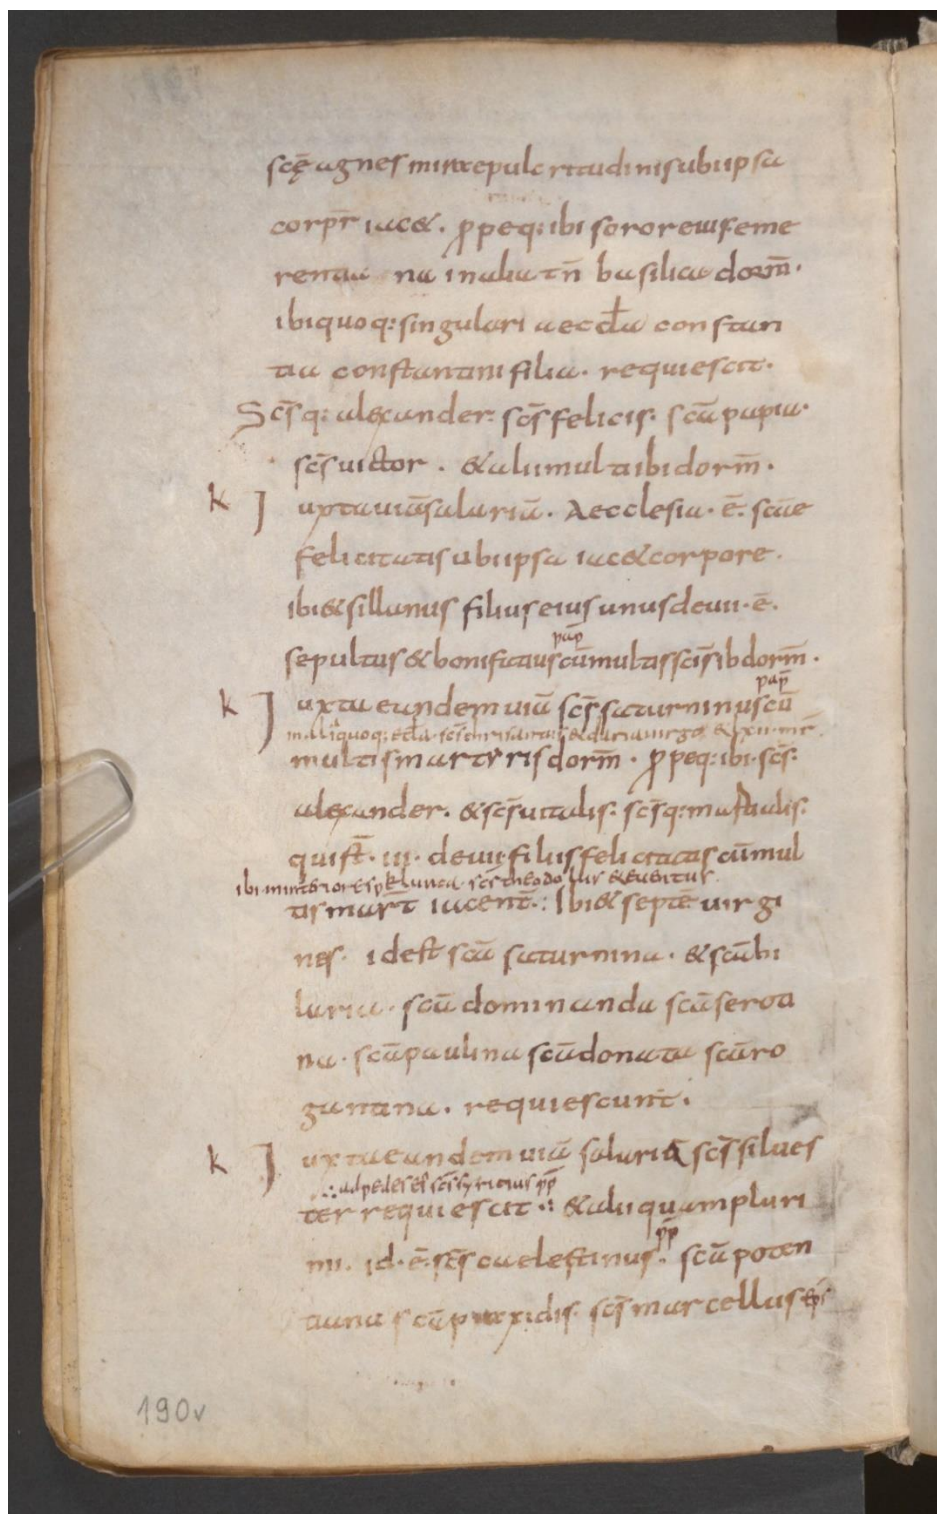 scę agnes mirae pulcritudinis ubi ipsa
corpr̄ iac&. ꝓpeq: ibi soror eius eme
rentia na in alia tn̄ basilica dorm̄.
ibi quoq: singulari aeccƚa constan
tia constantini filia. requiescit.
Scs̄q: alexander: scs̄ felicis: scā papia.
scs̄ uictor. & alii multi ibi dorm̄.
k Juxta uiā salariā. Aecclesia. ē. scāe
felicitatis ubi ipsa iac& corpore.
ibi & sillanus filius eius unus de uii. ē.
pap̄
sepultus & bonifatius cū multis scīs ib dorm̄.
pap̄
k Juxta eandem uiā scs̄ saturninus cū
in aliquoq: eccƚa. scs̄ crisantus & daria uirgo & lxii. mr̄.
multis martyris dorm̄. ꝓpeq: ibi. scs̄:
alexander. & scs̄ uitalis: scs̄q: martialis:
qui st̄. iii. de uii: filiis felicitatis cū mul
ibi in interiore spelunca scs̄ theodolus & euentus.
tis mart̄ iacent̄.: Ibi & septē uirgi
nes. id est scā saturnina. & scā hi
laria. scā dominanda scā seroti
na. scā paulina scā donata scā ro
gantina. requiescunt.
k Juxta eandem uiā salariā scs̄ silues
.: ad pedes ei scs̄ syricius pp̄
ter requiescit.: & alii quam pluri
pp̄
mi. id. ē. scs̄ caelestinus. scā poten
tiana scā praxidis. scs̄ marcellus eps̄
190v